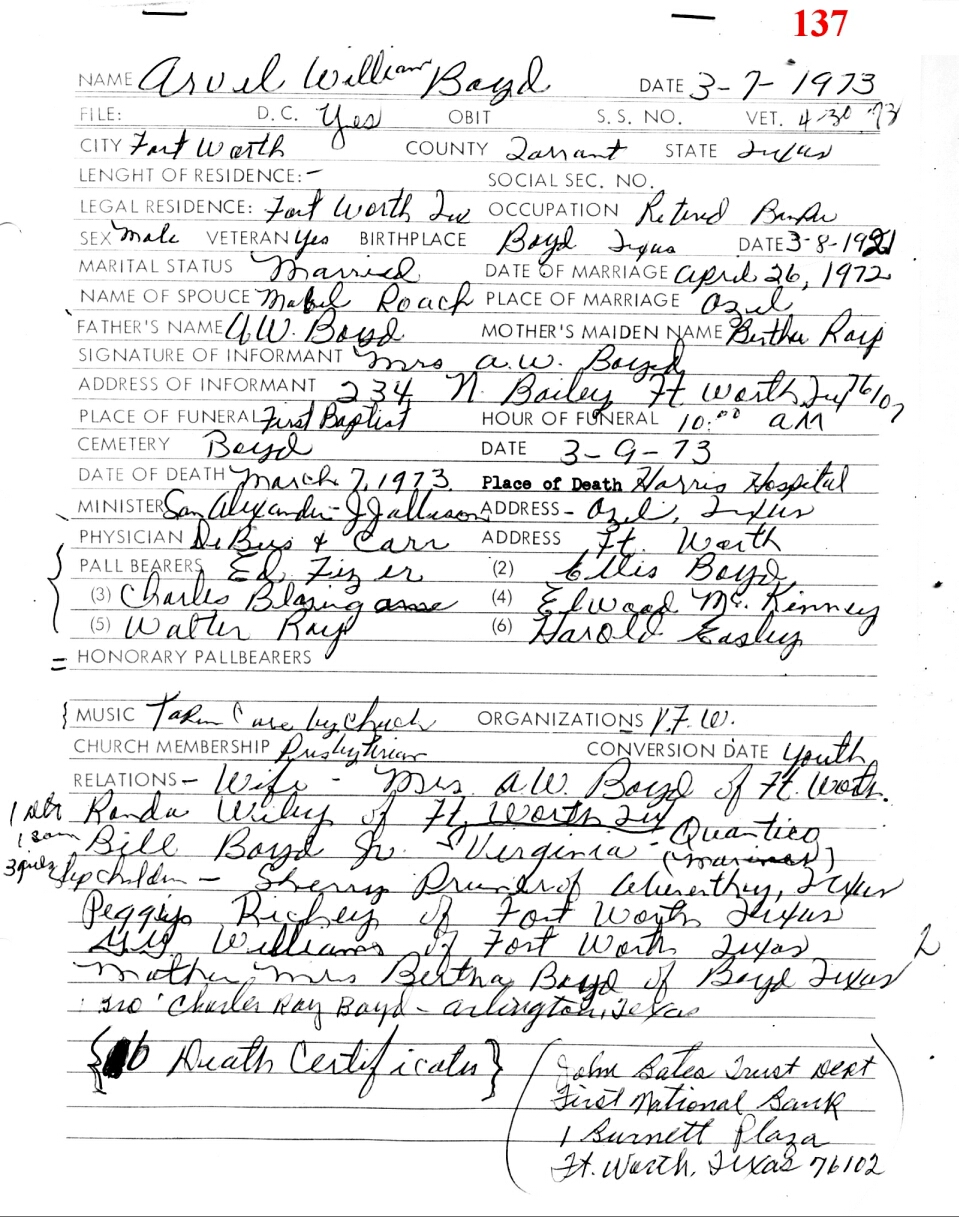 137
NAME Arvel William Boyd DATE 3-7-1973
FILE: D.C. Yes OBIT S.S. NO. VET. 4-30-73
CITY Fort Worth COUNTY Tarrant STATE Texas
LENGHT OF RESIDENCE: - SOCIAL SEC. NO.
LEGAL RESIDENCE: Fort Worth Tex OCCUPATION Retired Banker
SEX Male VETERAN Yes BIRTHPLACE Boyd Texas DATE 3-8-1921
MARITAL STATUS Married DATE OF MARRIAGE April 26, 1972
NAME OF SPOUCE Mabel Roach PLACE OF MARRIAGE Azel
FATHER'S NAME A.W. Boyd MOTHER'S MAIDEN NAME Bertha Ray
SIGNATURE OF INFORMANT Mrs A.W. Boyd
ADDRESS OF INFORMANT 234 N. Bailey Ft. Worth, Tex 76107
PLACE OF FUNERAL First Baptist HOUR OF FUNERAL 10:00 AM
CEMETERY Boyd DATE 3-9-73
DATE OF DEATH March 7, 1973 Place of Death Harris Hospital
MINISTER Sam Alexander - J. ADDRESS - Azel, Texas
PHYSICIAN & Carr ADDRESS Ft. Worth
PALL BEARERS Ed. Fizer (2) Ellis Boyd
(3) Charles Blasingame (4) Elwood Mc. Kinney
(5) Walter Ray (6) Harold Easley
= HONORARY PALLBEARERS
MUSIC Taken Care by Church ORGANIZATIONS V.F.W.
CHURCH MEMBERSHIP Presbyterian CONVERSION DATE Youth
RELATIONS - Wife - Mrs A.W. Boyd of Ft. Worth.
1 dtr Ronda Wiley of Ft. Worth Tex
1 son Bill Boyd Jr. - Virginia - Quantico (Marines)
Stepchildren - Sherry of Texas
Peggy Richey of Fort Worth Texas
Williams of Fort Worth Texas
Mother Mrs Bertha Boyd of Boyd Texas 2
Bro Charles Ray Boyd - Arlington, Texas
{6 Death Certificates}
(John Bates Trust Dept
First National Bank
1 Burnett Plaza
Ft. Worth, Texas 76102)